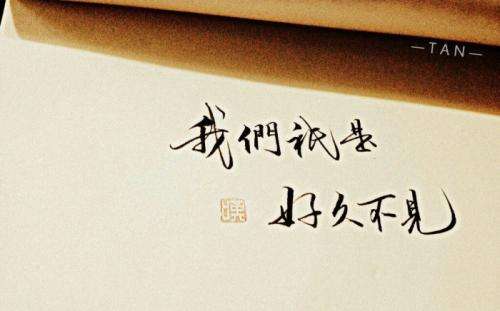 —TAN—
我們祇是
好久不見